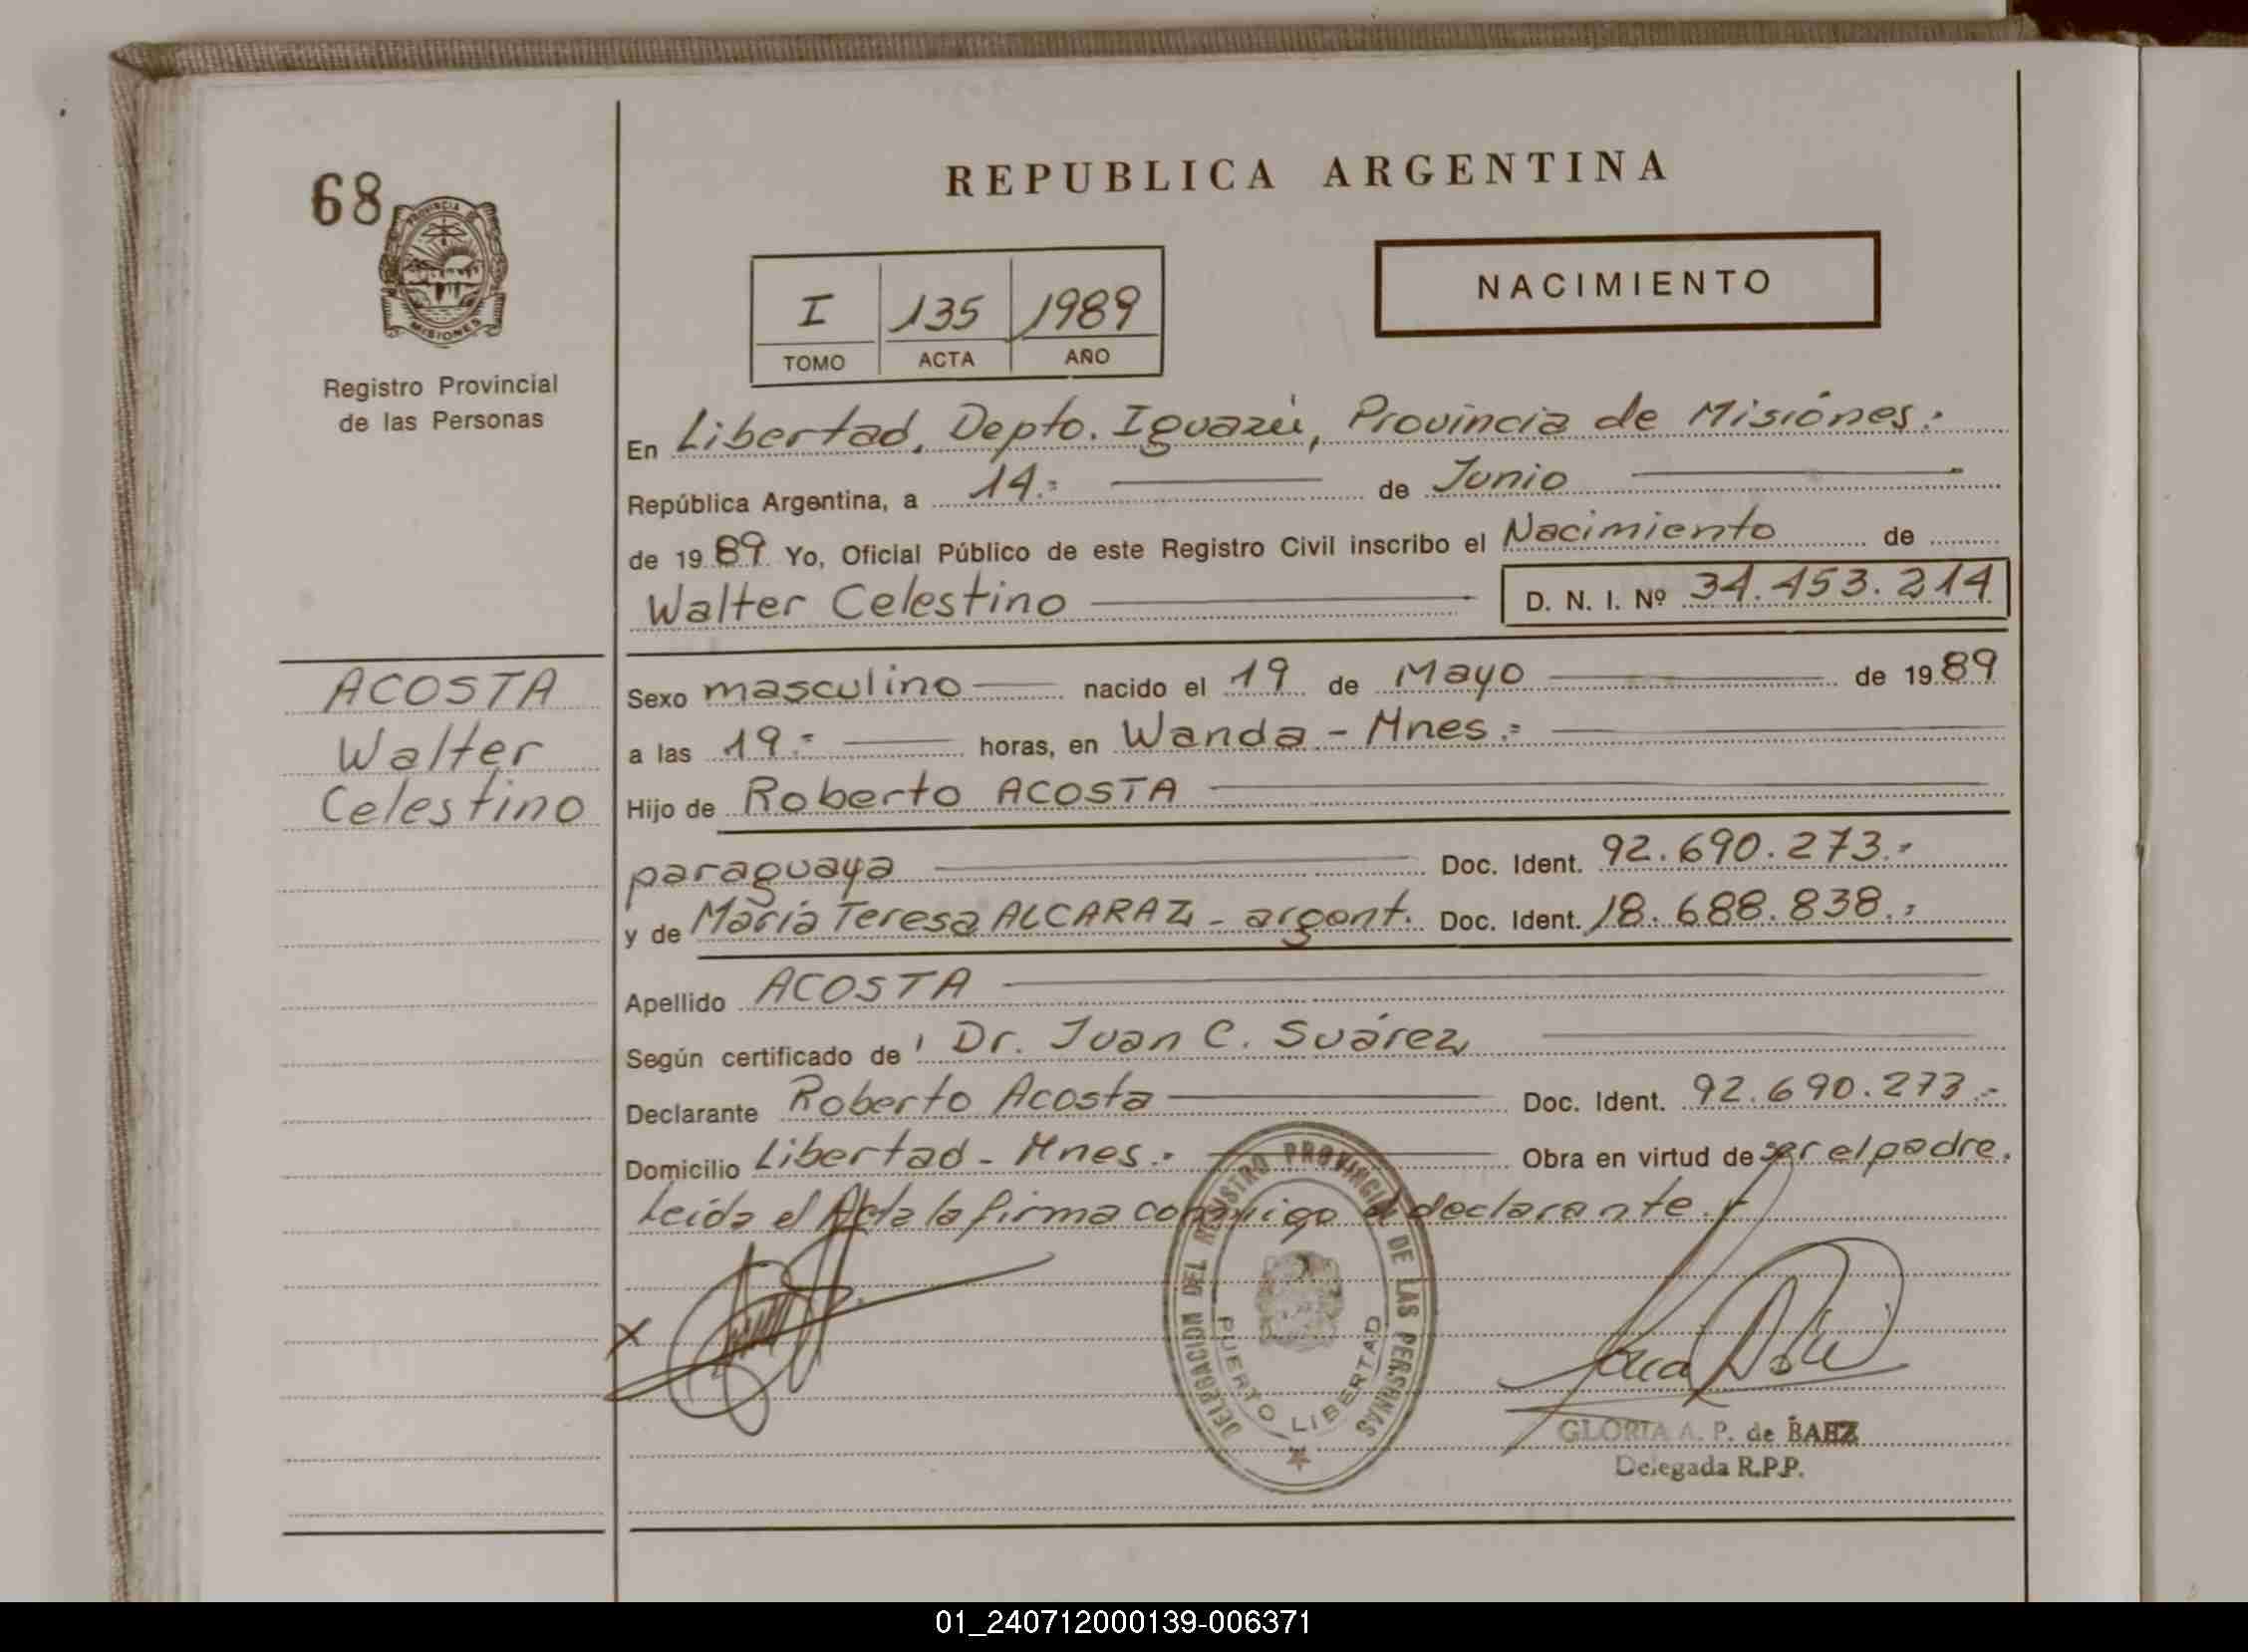 REPUBLICA ARGENTINA
68
PROVINCIA DE
MISIONES
NACIMIENTO
I 135 1989
TOMO ACTA AÑO
Registro Provincial
de las Personas
En Libertad, Depto. Iguazú, Provincia de Misiónes.
República Argentina, a 14.= de Junio
de 1989 Yo, Oficial Público de este Registro Civil inscribo el Nacimiento de
Walter Celestino D. N. I. Nº 34.453.214
ACOSTA
Walter
Celestino
Sexo masculino nacido el 19 de Mayo de 1989
a las 19.= horas, en Wanda - Mnes.=
Hijo de Roberto ACOSTA
paraguaya Doc. Ident. 92.690.273.-
y de María Teresa ALCARAZ - argent. Doc. Ident. 18.688.838.-
Apellido ACOSTA
Según certificado de Dr. Juan C. Suárez
Declarante Roberto Acosta Doc. Ident. 92.690.273.-
Domicilio Libertad - Mnes.- Obra en virtud de ser el padre.
Leída el Acta la firma conmigo el declarante.-
X
DELEGACION DEL REGISTRO PROVINCIAL DE LAS PERSONAS
PUERTO LIBERTAD
GLORIA A. P. de BAEZ
Delegada R.P.P.
01_240712000139-006371